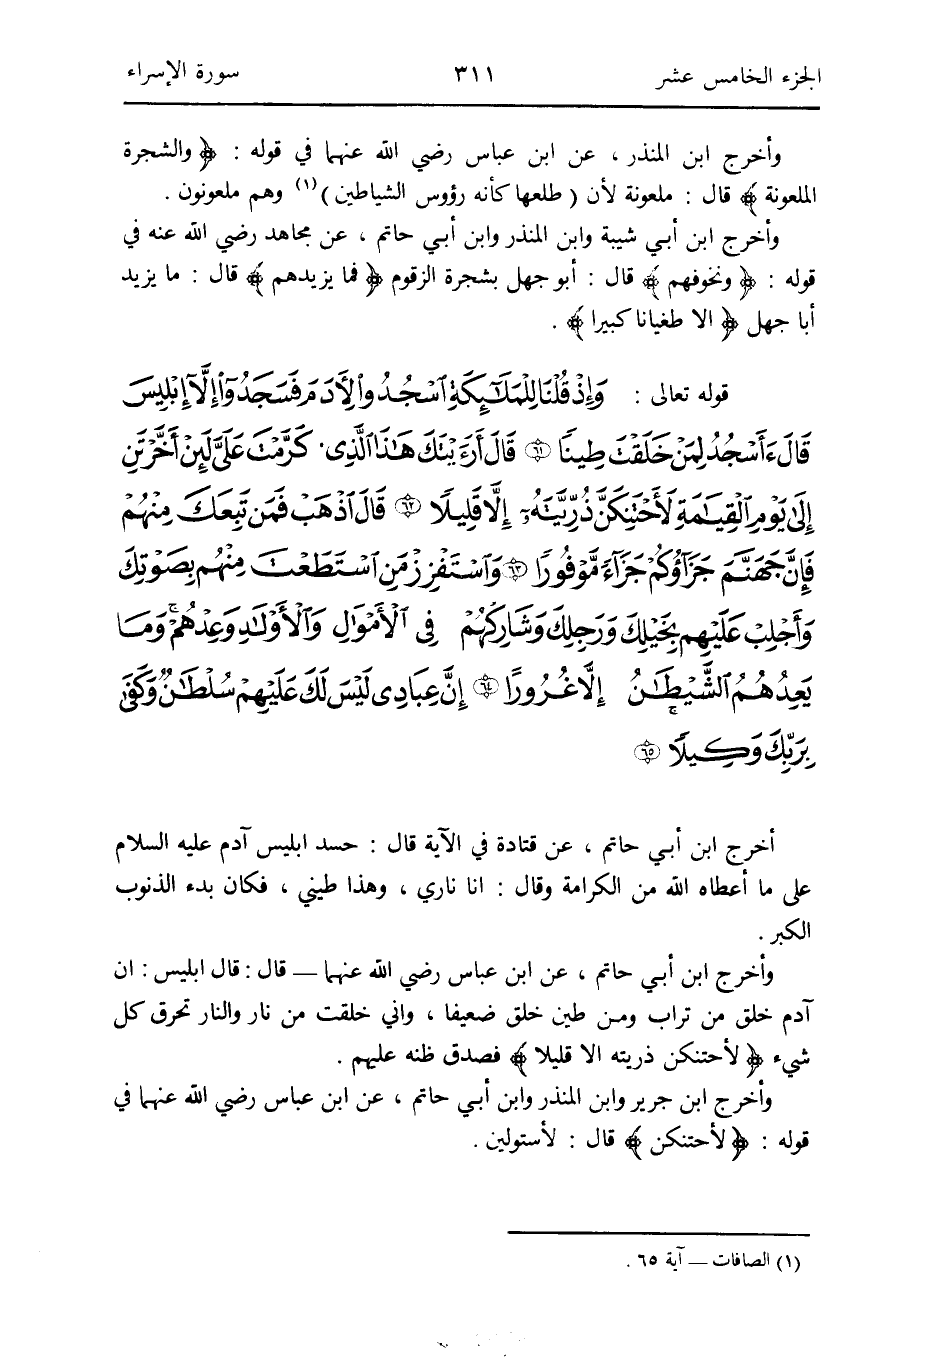 الجزء الخامس عشر ٣١١ سورة الإسراء
وأخرج ابن المنذر ، عن ابن عباس رضي الله عنهما في قوله : ﴿ والشجرة
الملعونة ﴾ قال : ملعونة لأن ( طلعها كأنه رؤوس الشياطين )(١) وهم ملعونون .
وأخرج ابن أبي شيبة وابن المنذر وابن أبي حاتم ، عن مجاهد رضي الله عنه في
قوله : ﴿ ونخوفهم ﴾ قال : أبو جهل بشجرة الزقوم ﴿ فما يزيدهم ﴾ قال : ما يزيد
أبا جهل ﴿ الا طغيانا كبيرا ﴾ .
قوله تعالى : وَإِذۡ قُلۡنَا لِلۡمَلَٰٓئِكَةِ ٱسۡجُدُواْ لِأٓدَمَ فَسَجَدُوٓاْ إِلَّآ إِبۡلِيسَ
قَالَ ءَأَسۡجُدُ لِمَنۡ خَلَقۡتَ طِينٗا ٦١ قَالَ أَرَءَيۡتَكَ هَٰذَا ٱلَّذِي كَرَّمۡتَ عَلَيَّ لَئِنۡ أَخَّرۡتَنِ
إِلَىٰ يَوۡمِ ٱلۡقِيَٰمَةِ لَأَحۡتَنِكَنَّ ذُرِّيَّتَهُۥٓ إِلَّا قَلِيلٗا ٦٢ قَالَ ٱذۡهَبۡ فَمَن تَبِعَكَ مِنۡهُمۡ
فَإِنَّ جَهَنَّمَ جَزَآؤُكُمۡ جَزَآءٗ مَّوۡفُورٗا ٦٣ وَٱسۡتَفۡزِزۡ مَنِ ٱسۡتَطَعۡتَ مِنۡهُم بِصَوۡتِكَ
وَأَجۡلِبۡ عَلَيۡهِم بِخَيۡلِكَ وَرَجِلِكَ وَشَارِكۡهُمۡ فِي ٱلۡأَمۡوَٰلِ وَٱلۡأَوۡلَٰدِ وَعِدۡهُمۡۚ وَمَا
يَعِدُهُمُ ٱلشَّيۡطَٰنُ إِلَّا غُرُورًا ٦٤ إِنَّ عِبَادِي لَيۡسَ لَكَ عَلَيۡهِمۡ سُلۡطَٰنٞۚ وَكَفَىٰ
بِرَبِّكَ وَكِيلٗا ٦٥
أخرج ابن أبي حاتم ، عن قتادة في الآية قال : حسد ابليس آدم عليه السلام
على ما أعطاه الله من الكرامة وقال : انا ناري ، وهذا طيني ، فكان بدء الذنوب
الكبر .
وأخرج ابن أبي حاتم ، عن ابن عباس رضي الله عنهما — قال : قال ابليس : ان
آدم خلق من تراب ومن طين خلق ضعيفا ، واني خلقت من نار والنار تحرق كل
شيء ﴿ لأحتنكن ذريته الا قليلا ﴾ فصدق ظنه عليهم .
وأخرج ابن جرير وابن المنذر وابن أبي حاتم ، عن ابن عباس رضي الله عنهما في
قوله : ﴿ لأحتنكن ﴾ قال : لأستولين .
(١) الصافات — آية ٦٥ .